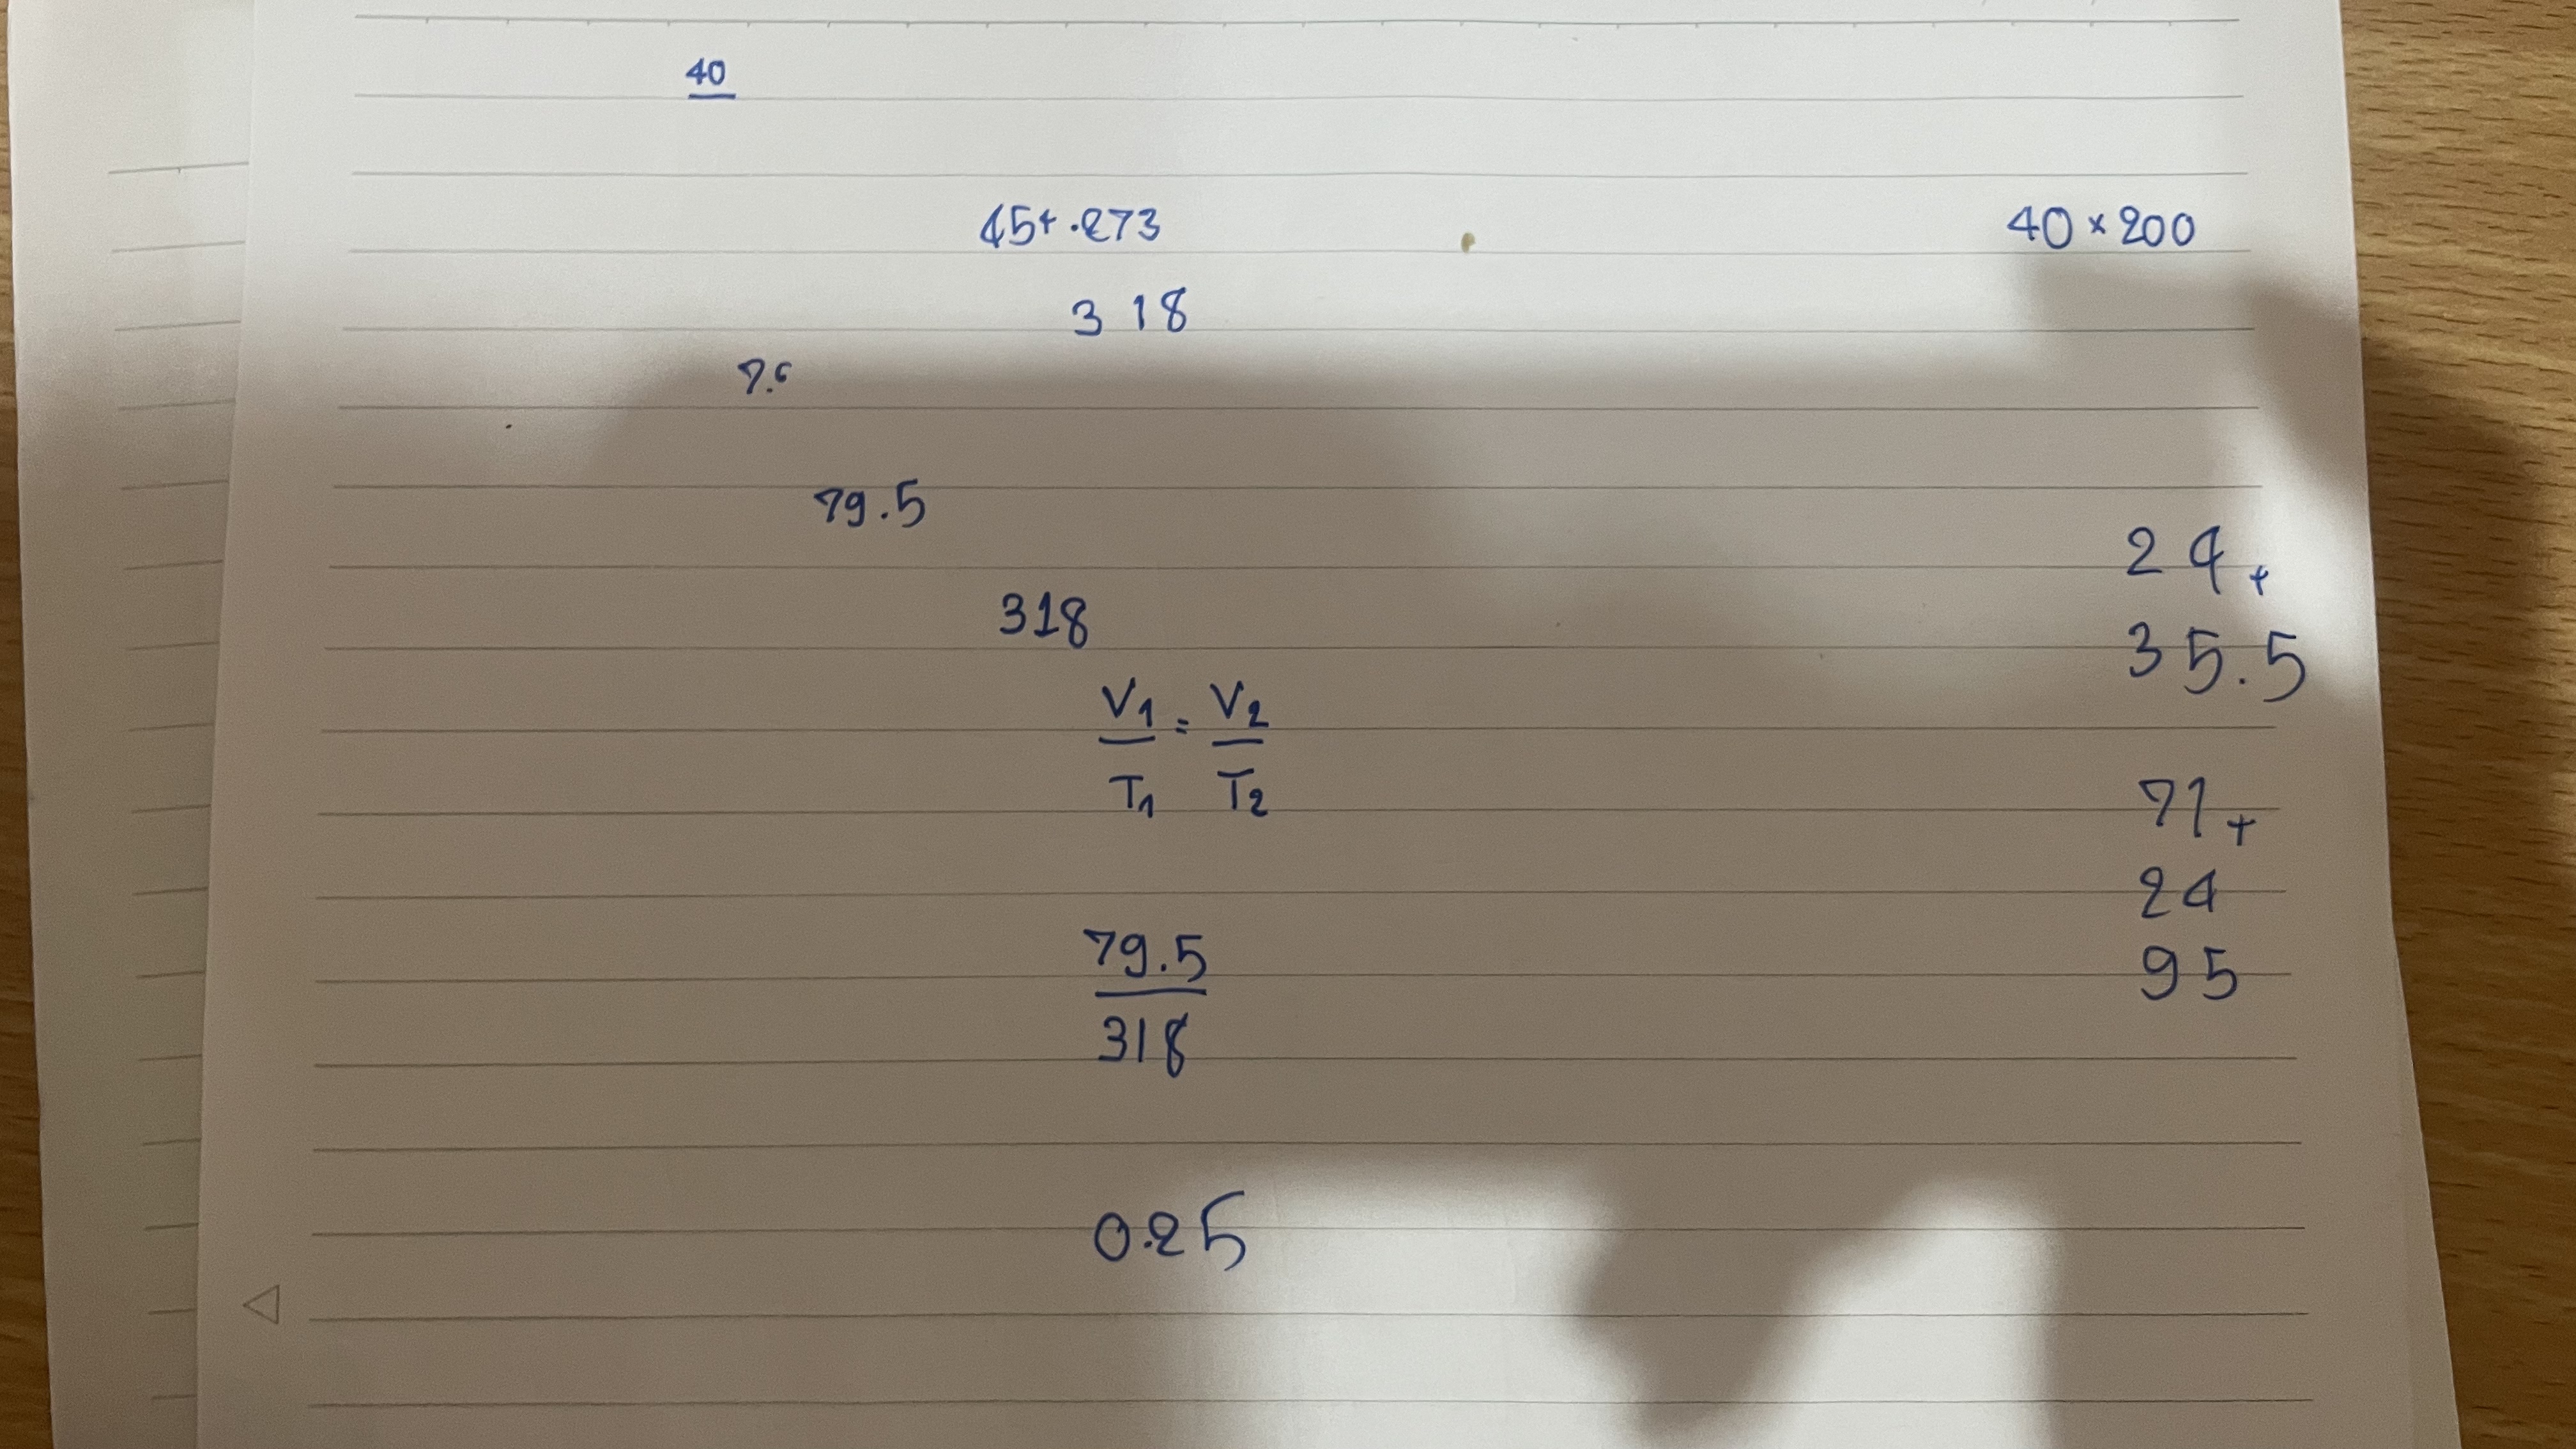 40
45+.273
40 × 200
318
7.6
79.5
24+
35.5
318
V1 = V2
T1 T2
71+
24
79.5
95
318
0.25